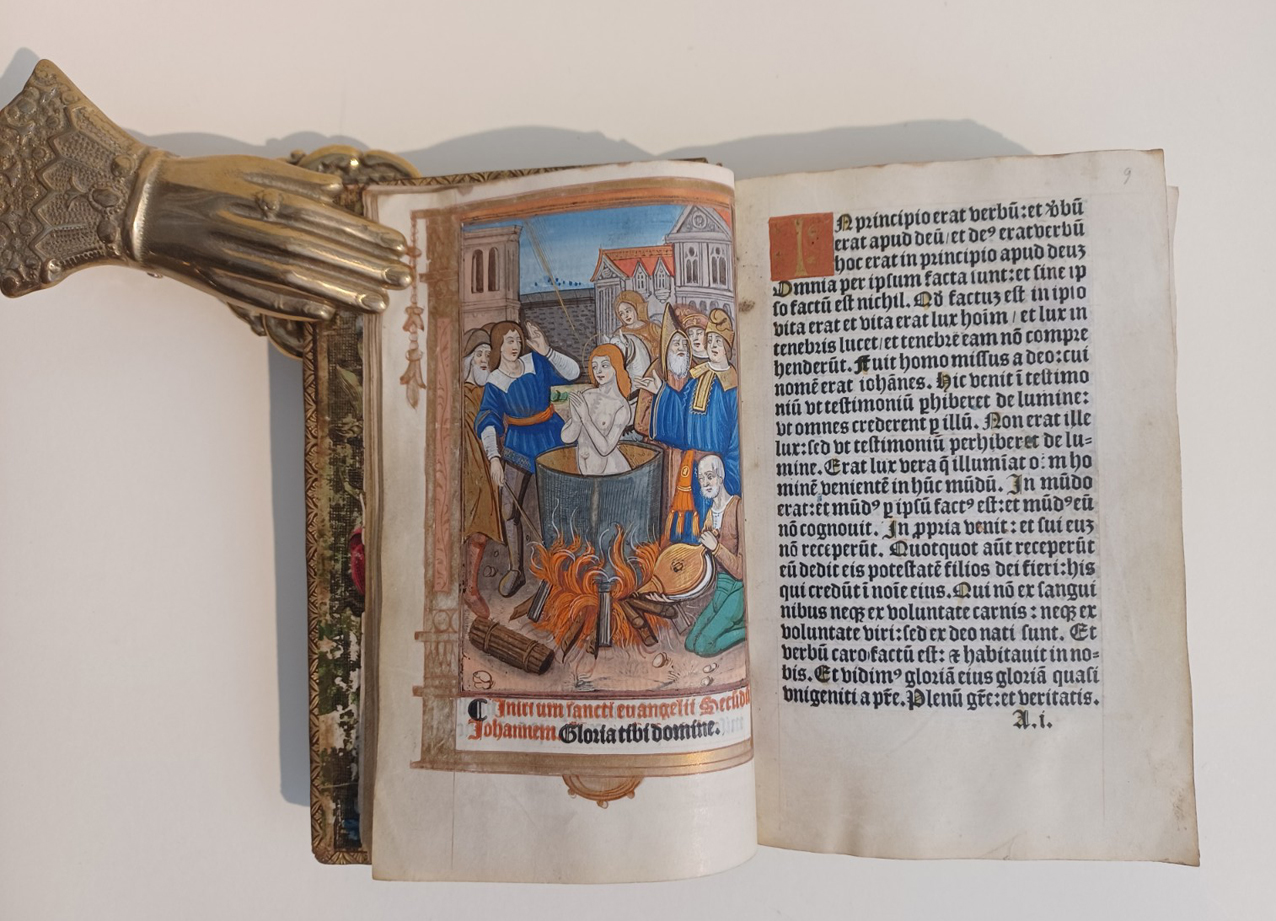 Initium sancti euangelii Secūdū
Johannem. Gloria tibi domine.
9
IN principio erat verbū: et v̄bū
erat apud deū/ et deꝰ erat verbū
hoc erat in principio apud deuꝫ
Omnia per ipsum facta sunt: et sine ip
so factū est nichil. Qd factuꝫ est in ipso
vita erat et vita erat lux hoīm / et lux in
tenebris lucet/ et tenebre eam nō compre
henderūt. Fuit homo missus a deo: cui
nomē erat iohānes. Hic venit ī testimo
niū vt testimoniū ꝑhiberet de lumine:
vt omnes crederent ꝑ illū. Non erat ille
lux: sed vt testimoniū perhiberet de lu=
mine. Erat lux vera q̄ illumīat o:m ho
minē venientē in hūc mūdū. In mūdo
erat: et mūdꝰ ꝑ ipsū factꝰ est: et mūdꝰ eū
nō cognouit. In ꝓpria venit: et sui euꝫ
nō receperūt. Quotquot aūt receperūt
eū dedit eis potestatē filios dei fieri: his
qui credūt ī noīe eius. Qui nō ex sangui
nibus neqꝫ ex voluntate carnis: neqꝫ ex
voluntate viri: sed ex deo nati sunt. Et
verbū caro factū est: ⁊ habitauit in no=
bis. Et vidimꝰ gloriā eius gloriā quasi
vnigeniti a pr̄e. Plenū gr̄e: et veritatis.
A.i.